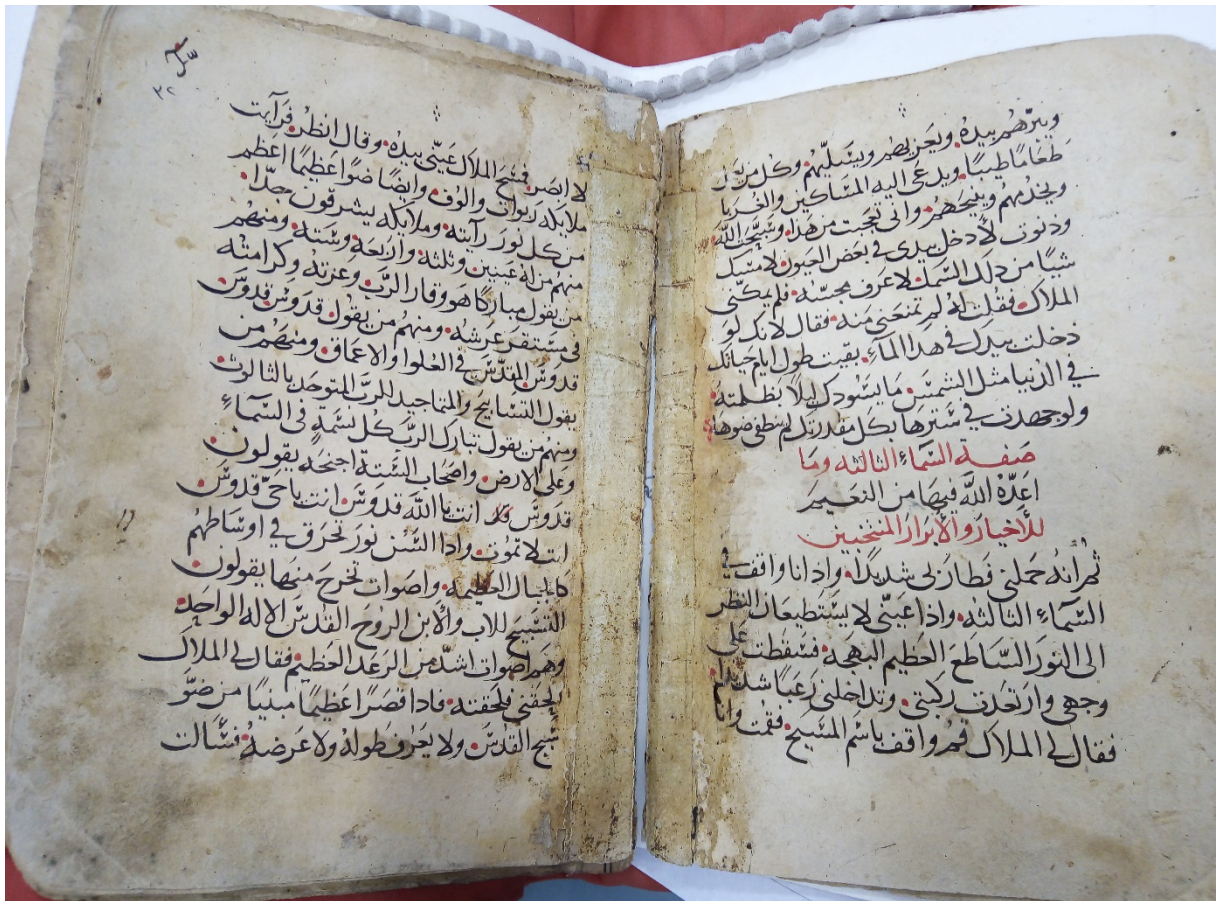 ويبرهم بيده ويعزيهم ويسليهم وكل من
طعاماً طيباً ويدعي اليه المساكين والغربا
ويخدمهم وينيحهم واني تعجبت من هذا وسبحت الله
ودنوت لادخل بيدي في بعض العيون لامسك
شياً من ذلك السمك لاعرف مجسته فلم يمكني
الملاك فقلت له لم تمنعني منه فقال لانك لو
دخلت بيدك في هذا الماء بقيت طول ايام حياتك
في الدنيا مثل الشمس ما يسودك ليلاً بظلمته
ولو جهدت في سترها بكل مقدرتك لم ينطفي ضوها
صفة السماء الثالثه وما
اعده الله فيها من النعيم
للاخيار والابرار المنتخبين
ثم انه حملني فطار بي شديداً واذا انا واقف في
السماء الثالثه واذا عيني لا يستطيعان النظر
الى النور الساطع العظيم البهجه فسقطت على
وجهي وارتعدت ركبتي وتداخلني رعباً شديداً
فقال لي الملاك قم واقف باسم المسيح فقمت وانا
٣٢
لا ابصر ففتح الملاك عيني بيده وقال انظر فرآيت
ملايكه ربوات والوف وايضاً ضوا عظيماً اعظم
من كل نور رآيته وملايكه يشرقون جداً
منهم من له عينين وثلثه وأربعة وسته ومنهم
من يقول مباركاً هو وقار الرب وعزته وكرامته
في مستقر عرشه ومنهم من يقول قدوس قدوس
قدوس المقدس في العلوا والاعماق ومنهم من
يقول التسابيح والتماجيد للرب المتوحد بالثالوث
ومنهم من يقول تبارك الرب كل نسمةٍ في السماء
وعلى الارض واصحاب الستة اجنحه يقولون
قدوس انت يا الله قدوس انت يا حي قدوس
انت لا تموت واذا السن نور تحرق في اوساطهم
كالجبال العظيمه واصوات تخرج منها يقولون
التسبيح للاب والابن الروح القدس الاله الواحد
وهم اصوات اشد من الرعد العظيم فقال لي الملاك
الحقني فلحقته فاذا قصراً عظيماً مبنياً من ضو
القدس ولا يعرف طوله ولا عرضه فسالت